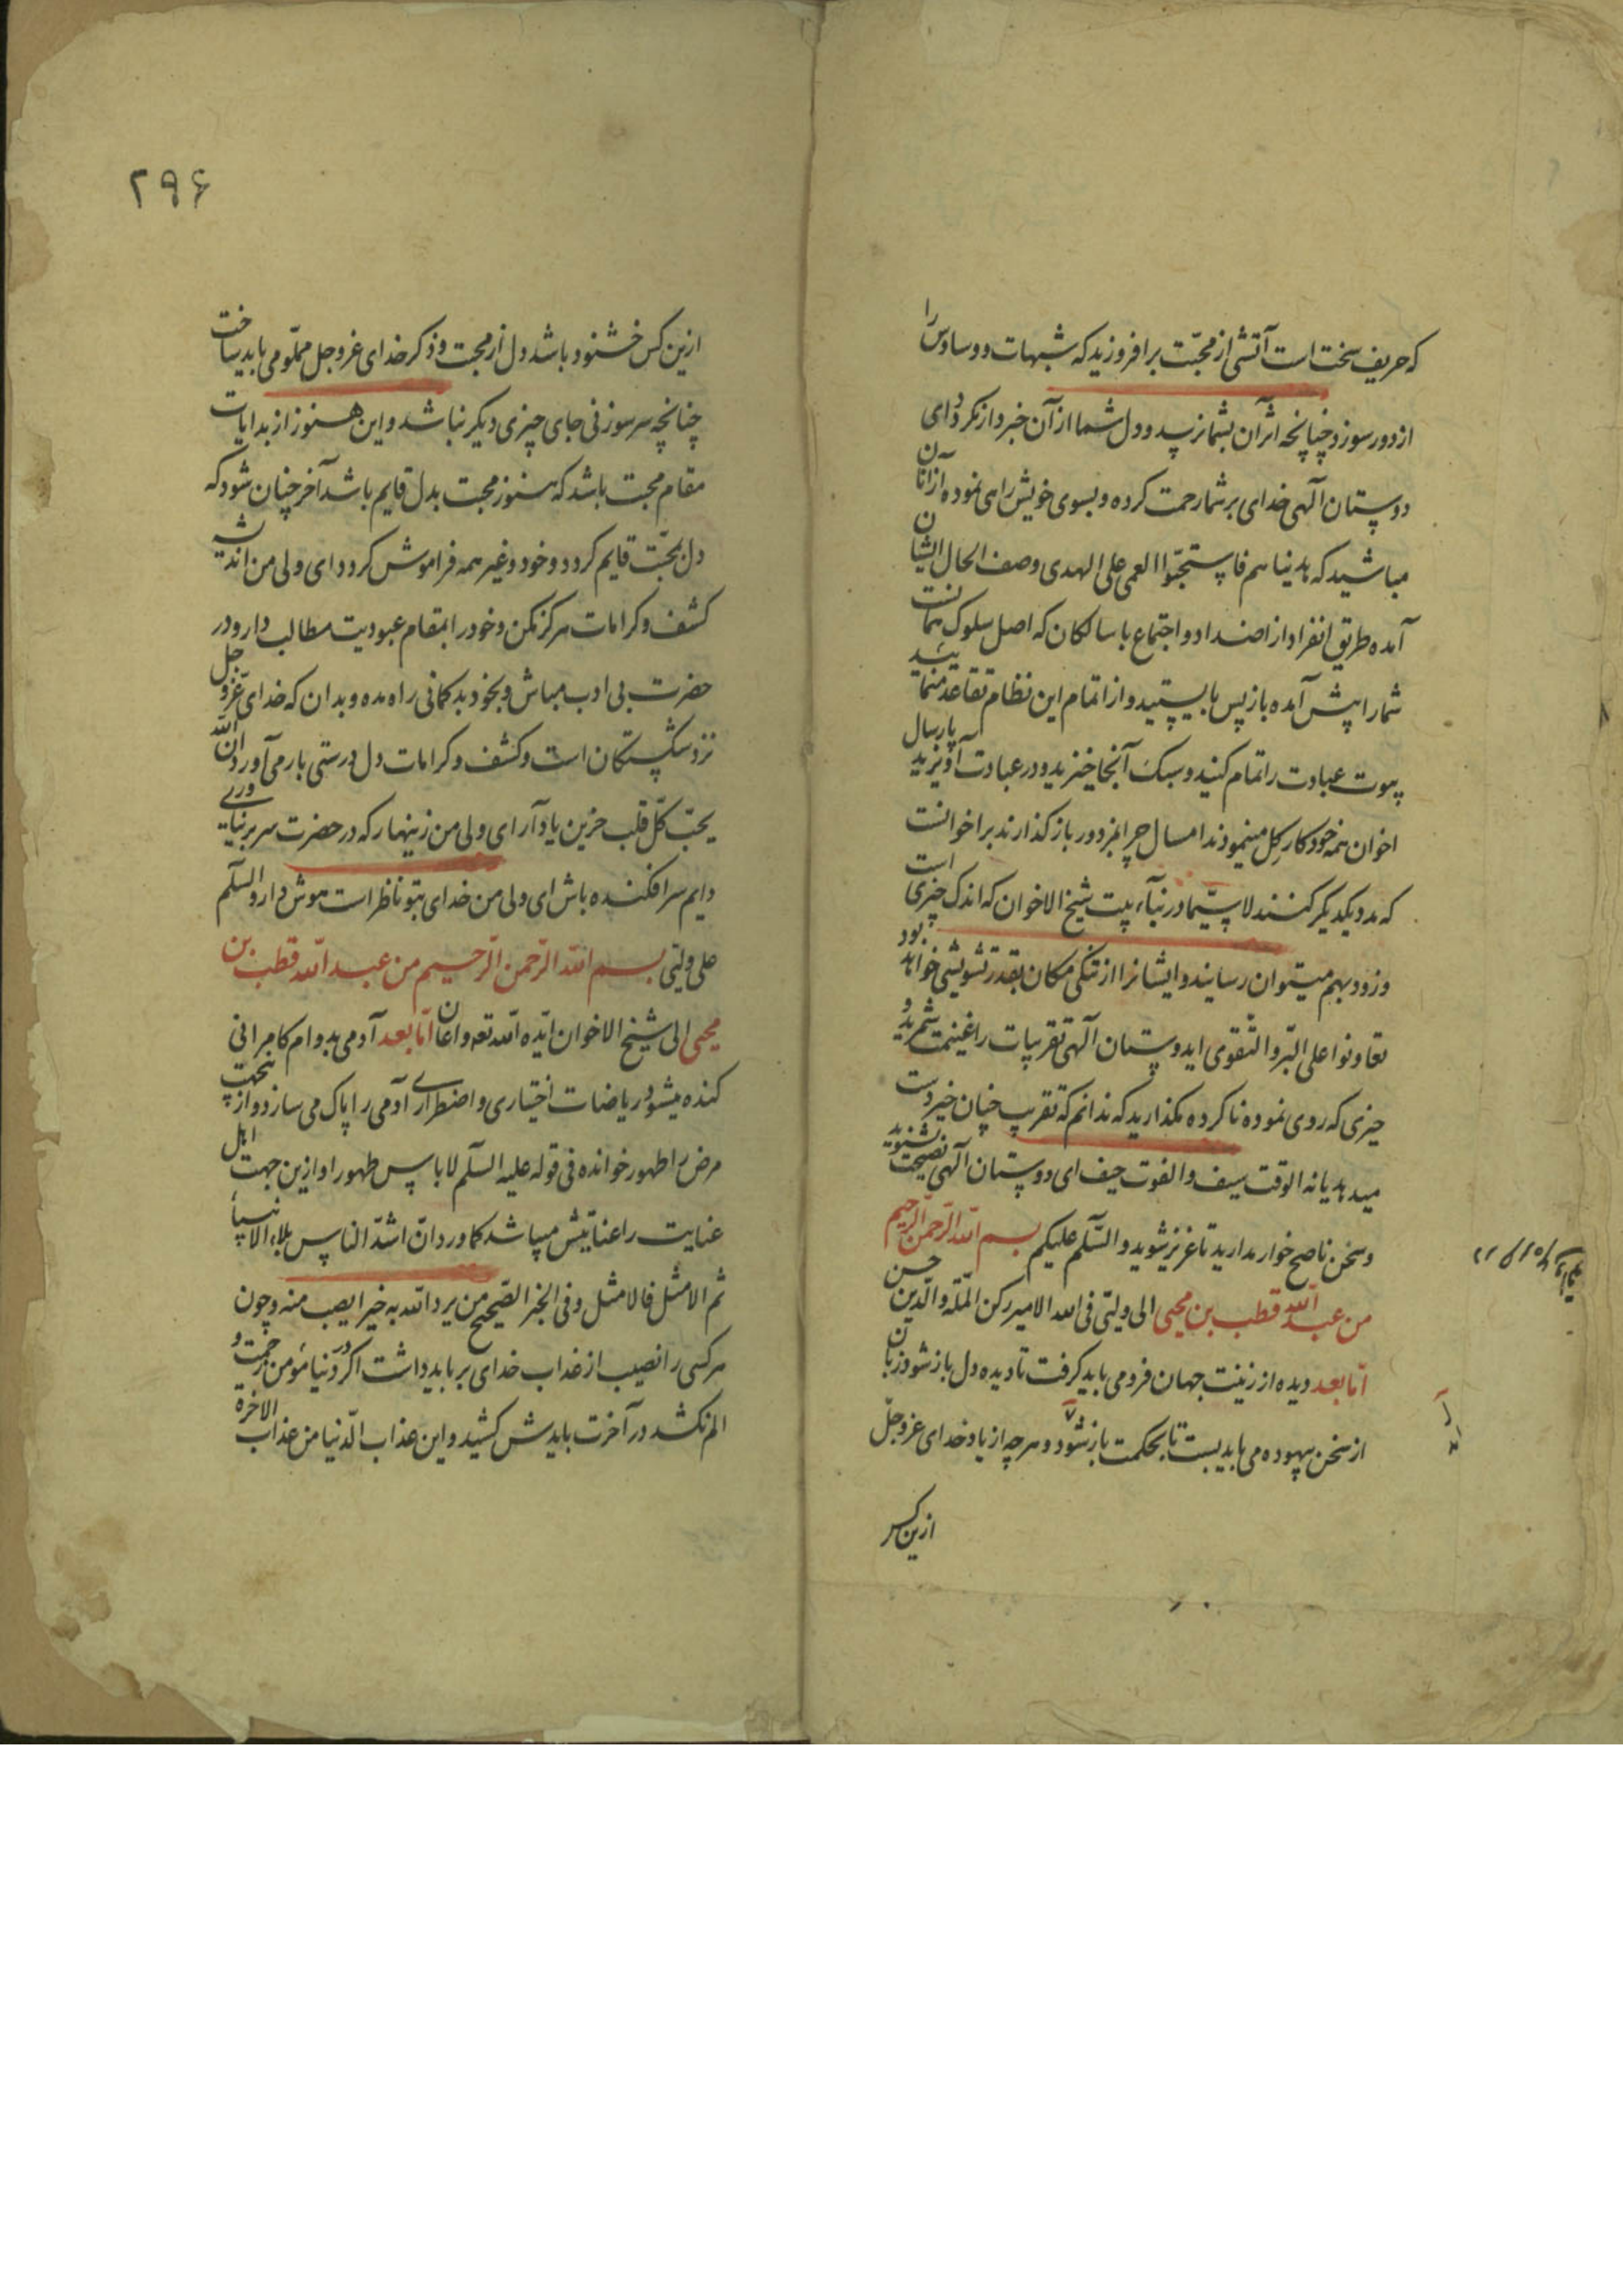 که حریف سخت است آتشی از محبّت برافروزید که شبهات و وساوس را
از دور سوزد چنانچه اثر آن بشما نرسد و دل شما از آن خبردار نکردد ای
دوستان آلهی خدای بر شما رحمت کرده و بسوی خویش راهی نموده از آنان
مباشید که هدیناهم فاستحبّوا العمی علی الهدی وصف الحال ایشان
آمده طریق انفراد از اضداد و اجتماع با سالکان که اصل سلوک همانست
شما را پیش آمده باز پس مایستید و از اتمام این نظام تقاعد منمایید
بیوت عبادت را تمام کنید و سبک آنجا خیزید و در عبادت آویزید پارسال
اخوان همه خود کار کل مینمودند امسال چرا بمزدور باز کذارند بر اخوانست
که مدد یکدیکر کنند لا سیّما در بنآء بیت شیخ الاخوان که اندک چیزی است
و زود بهم میتوان رسانید و ایشانرا از تنکی مکان بقدر تشویشی خواهد بود
تعاونوا علی البّر و التّقوی ای دوستان آلهی تقریبات را غنیمت شمرید و
چیزی که روی نموده ناکرده مکذارید که ندانم که تقریب چنان خیر دست
میدهد یا نه الوقت سیف و الفوت حیف ای دوستان آلهی نصیحت بشنوید
و سخن ناصح خوار مدارید تا عزیز شوید و السّلم علیکم بسم اللّه الرّحمن الرّحیم
من عبد اللّه قطب بن محیی الی ولیّی فی الله الامیر رکن الملّة و الدّین حسن
امّا بعد دیده از زینت جهان فرو می باید کرفت تا دیده دل باز شود زبان
از سخن بیهوده می باید بست تا بحکمت باز شود و هر چه از یاد خدای عزّ و جلّ
ازین کس
۲۹۶
ازین کس خشنود باشد دل از محبت و ذکر خدای عز و جل مملّو می باید ساخت
چنانچه سر سوزنی جای چیزی دیکر نباشد و این هنوز از بدایات
مقام محبت باشد که هنوز محبت بدل قایم باشد آخر چنان شود که
دل بمحبّت قایم کردد و خود و غیر همه فراموش کردد ای ولی من اندیشه
کشف و کرامات هرکز مکن و خود را بمقام عبودیت مطالب دار و در
حضرت بی ادب مباش و بخود بد کمانی راه مده و بدان که خدای عزّ و جل
نزد شکستکان است و کشف و کرامات دل درستی بار می آورد ان اللّه
یحبّ کلّ قلب حزین یاد آر ای ولی من زینهار که در حضرت سر بر نیاوری
دایم سر افکنده باش ای ولی من خدای بتو ناظر است هوش دار و السلّم
علی ولیّی بسم اللّه الرّحمن الرّحیم من عبد اللّه قطب بن
محیی الی شیخ الاخوان ایّده اللّه تعه و اعان امّا بعد آدمی بدوام کامرانی
کنده میشود ریاضات اختیاری و اضطراری آدمی را پاک می سازد و از پنجهت
مرض را طهور خوانده فی قوله علیه السلّم لا باس طهور او ازین جهت اهل
عنایت را عنا بیش میباشد کما ورد انّ اشدّ الناس بلاء الانبیاء
ثم الامثل فالامثل و فی الخبر الصّحیح من یرد اللّه به خیرا یصب منه و چون
هر کسی را نصیب از عذاب خدای برباید داشت اکر در دنیا مؤمن زحمت و
الم نکشد در آخرت بایدش کشید و این عذاب الدّنیا من عذاب الاخرة